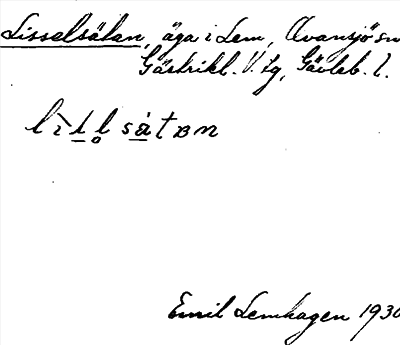 Lisselsätan, äga i Lem, Ovansjö sn
Gästrikl. V. tg, Gävleb. l.
Emil Lemhagen 1930